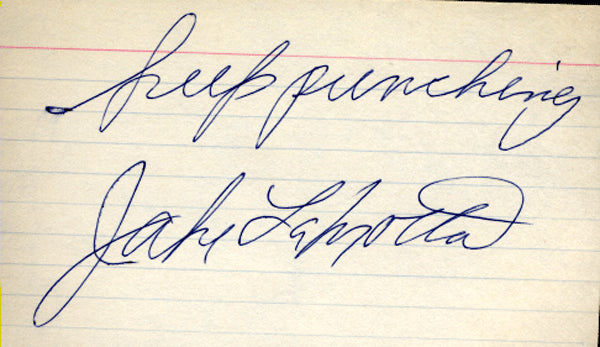 Keep punching
Jake LaMotta